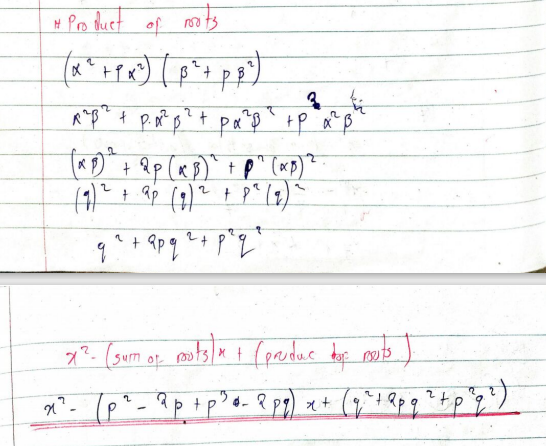 * Product of roots
(α² + pα²) (β² + pβ²)
α²β² + p.α²β² + pα²β² + p² α²β²
(αβ)² + 2p(αβ)² + p²(αβ)²
(q)² + 2p (q)² + p²(q)²
q² + 2pq² + p²q²
x² - (sum of roots)x + (produc of roots)
x² - (p² - 2p + p³ - 2pq) x + (q² + 2pq² + p²q²)